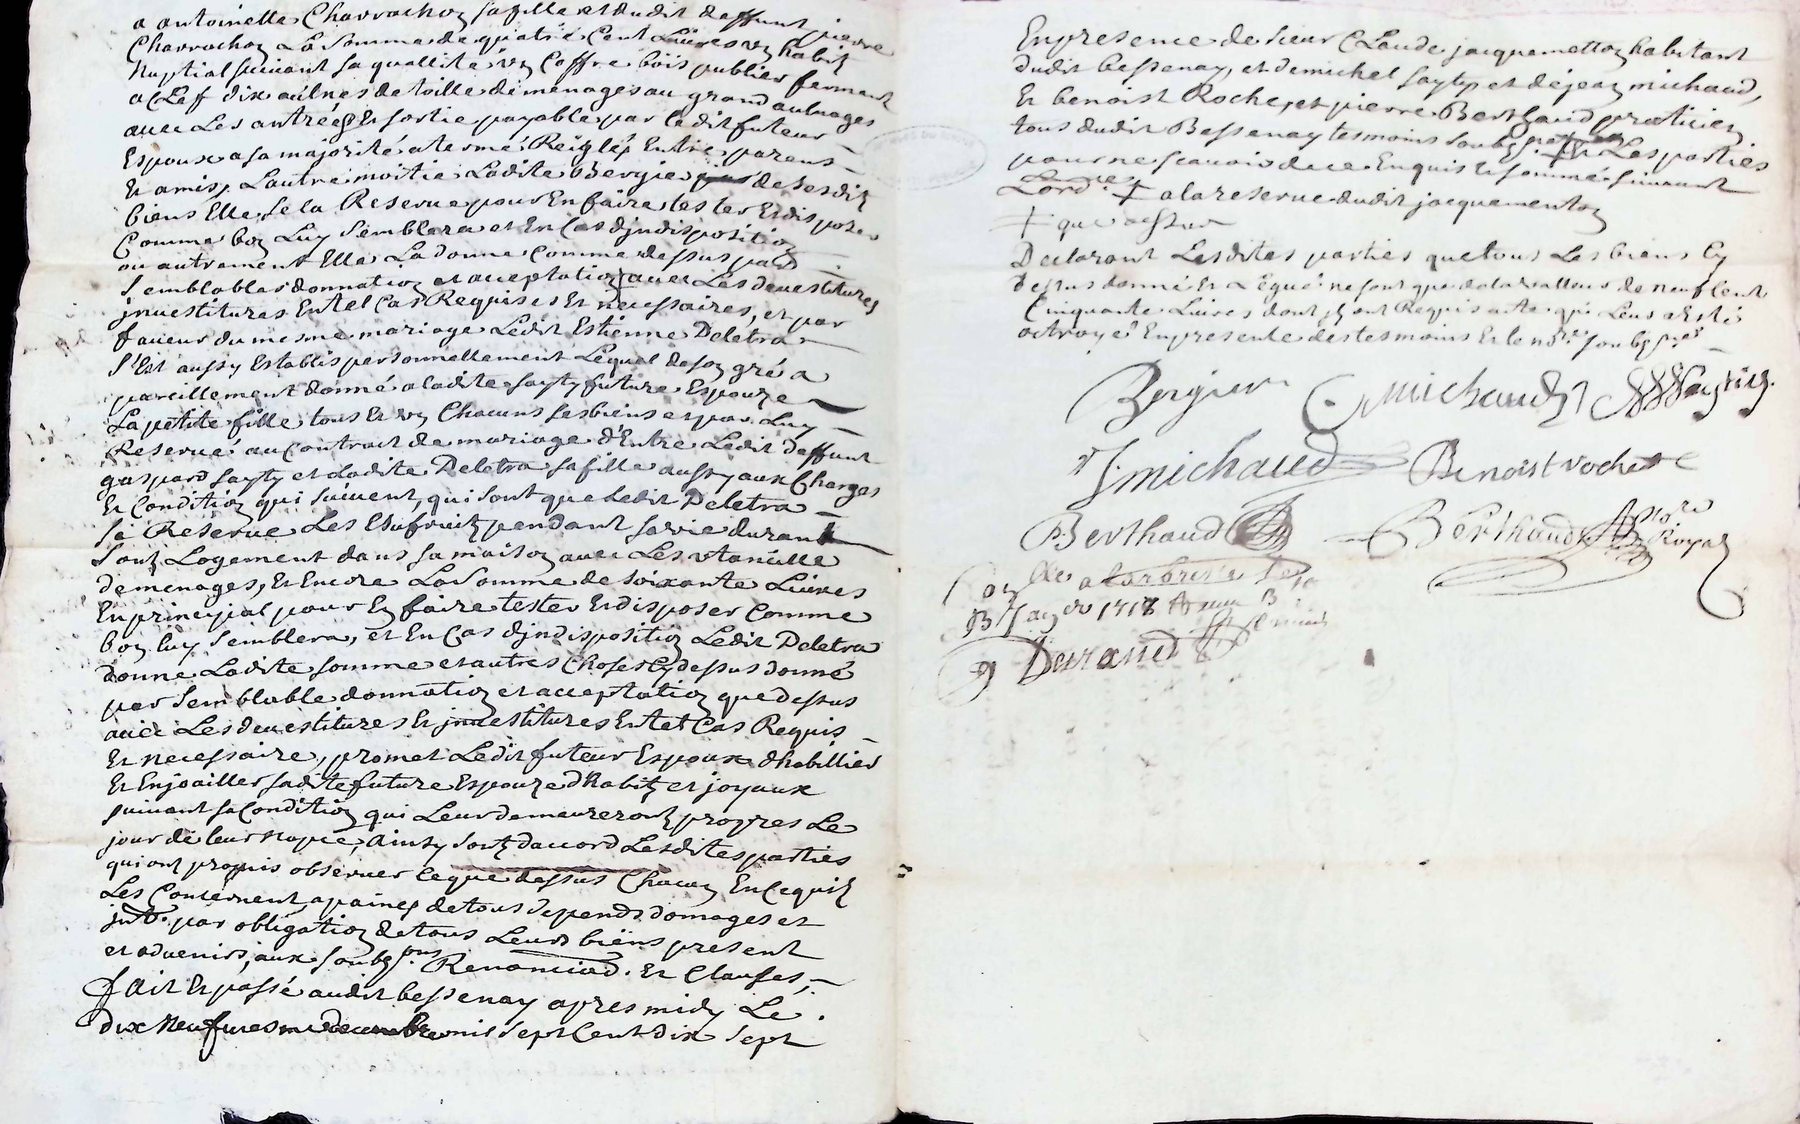 a antoinelle Charrachon sa fille et dudit deffunt pierre
Charrachon La Somme de quatre Cent Livres un habit
Nuptial suivant sa quallité un Coffre bois publier fermant
a Clef dix aulnes de toille de menages au grand aulnages
avec Les antrées Et sortie payable par ledit futeur
Espoux a sa majorité a termé Reiglés Entre parens
Et amis, Lautre moitié Ladite Bergie de ses dit
biens Elle se la Reserve pour En faire tester Et disposer
Comme bon Luy Semblera et En Cas d'indisposition
ou autrement Elle La donne Comme dessus par
Semblables donnation et acceptation avec Les devestitures
jnvestitures En tel Cas Requises Et necessaires, et par
faveur du mesme mariage Ledit Estienne Deletra
S'Est aussy Establis personnellement Lequel de son gré a
pareillement donné a ladite sayty future Espouze
La petite fille tous Et un Chacuns ses biens et par Luy
Reservé au Contract de mariage d'Entre Ledit deffunt
gaspard sayty et Ladite Deletra sa fille aussy aux Charges
Et Condition qui suivent, qui sont que Ledit Deletra
se Reserve Les Usufruit pendant sa vie durant
Sont Logement dans sa maison avec Les utancille
de menages, Et Encore La Somme de soixante Livres
En principal pour En faire tester Et disposer Comme
bon luy semblera, et En Cas d'jndisposition Ledit Deletra
donne Ladite somme et autres Choses Cy dessus donné
par semblable donnation et acceptation que dessus
avec Les devestitures Et jnvestitures En tel Cas Requis
Et necessaire, promet Ledit futeur Espoux d'habillier
Et Enjoailler sadite future Espouze d'habitz et joyaux
suivant sa Condition qui Leur demeureront propres Le
jour de leur Nopce, ainsy sont d'accord Lesdites parties
qui ont promis observer Ce que dessus Chacun En Ce qui
Les Concernent, a paines de tous depends domages et
jnt. par obligation de tous Leurs biens present
et advenirs, aux soubz.ons Renonciad. Et Clauses,
fait Et passé audit bessenay apres midy Le
dix Neufviesme decembre mil sept Cent dix sept
En presence de sieur Claude jacquemetton habitant
dudit bessenay, et de michel sayty et de jean michaud,
Et benoist Roche, et pierre Berthaud praticien
tous dudit Bessenay tesmoins soubz.nés Les parties
pour ne scavoir de ce Enquis Et sommé suivant
Lord.ce + a la reserve dudit jacquementon
+ que
Declarant Lesdites parties que tous Les biens Cy
dessus donné Et Legué ne sont que de la valleur de neuf Cent
Cinquante Livres dont ils ont Requis acte qui Leurs a esté
octroyé En presence des tesmoins Et le no.re soubz.nés
Bergier C Michaud
J michaud Benoist roche
Berthaud Berthaud no.re Royal
Con.llé a Larbresle Le
13 Janv.er 1718
Durand